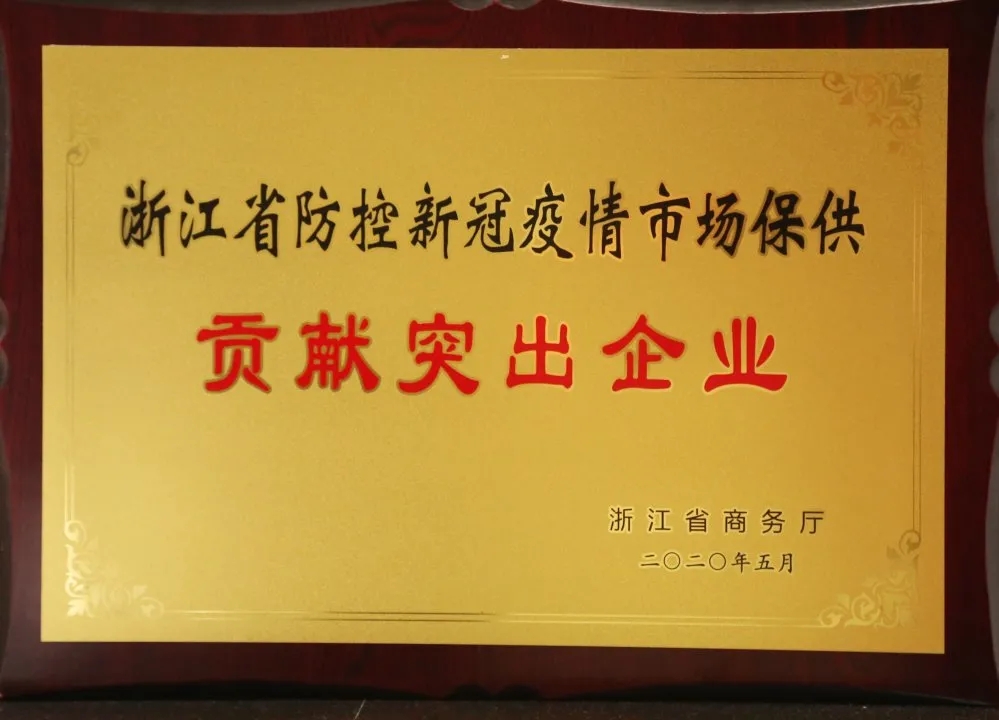 浙江省防控新冠疫情市场保供
贡献突出企业
浙江省商务厅
二〇二〇年五月